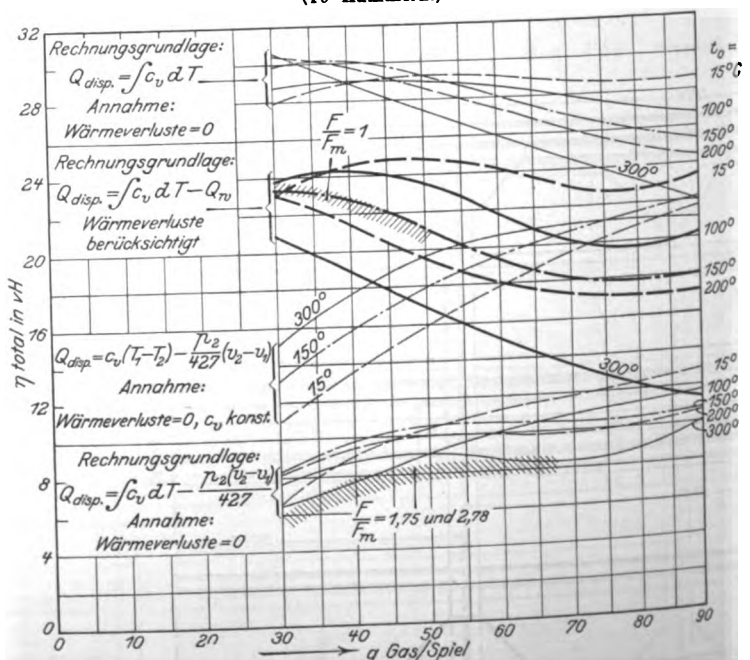 32
28
24
20
16
12
8
4
0
η total in vH
Rechnungsgrundlage:
Q disp. = ∫ c_v dT
Annahme:
Wärmeverluste = 0
Rechnungsgrundlage:
Q disp. = ∫ c_v dT − Q_w
Wärmeverluste
berücksichtigt
Q disp. = c_v (T₁−T₂) − p₂/427 (v₂−v₁)
Annahme:
Wärmeverluste=0, c_v konst.
Rechnungsgrundlage:
Q disp. = ∫ c_v dT − p₂(v₂−v₁)/427
Annahme:
Wärmeverluste = 0
F/F_m = 1
300°
300°
150°
15°
300°
F/F_m = 1,75 und 2,78
t₀ =
15°C
100°
150°
200°
15°
100°
150°
200°
15°
100°
150°
200°
300°
0 10 20 30 40 50 60 70 80 90
g Gas/Spiel